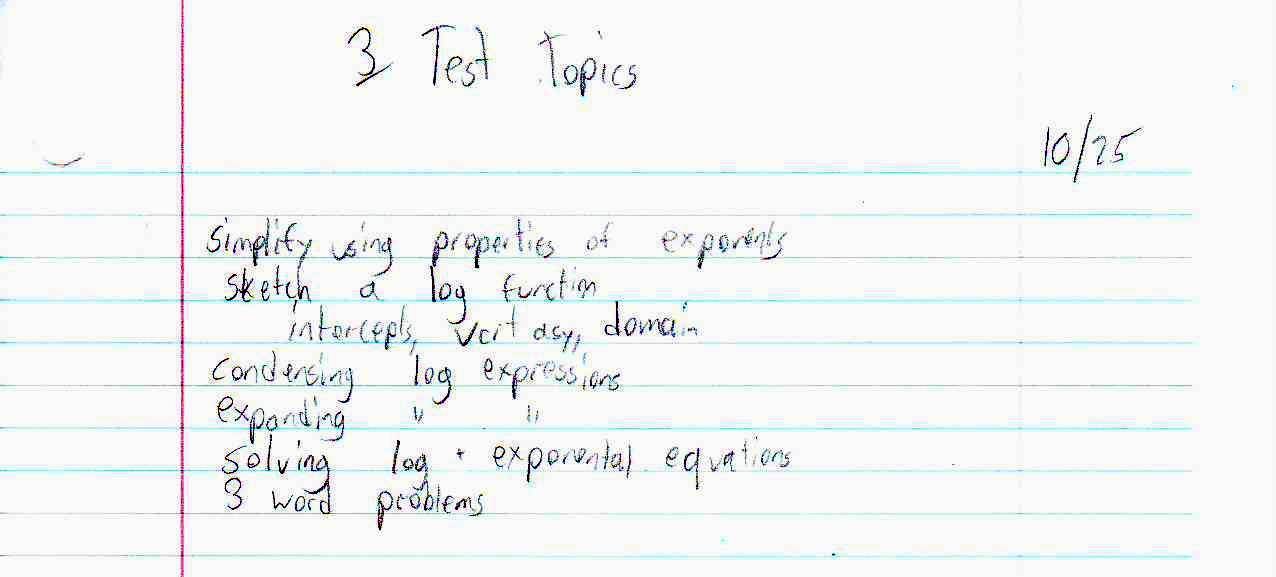 3 Test Topics
10/25
Simplify using properties of exponents
sketch a log function
intercepts, vert asy, domain
condensing log expressions
expanding " "
solving log + exponental equations
3 word problems